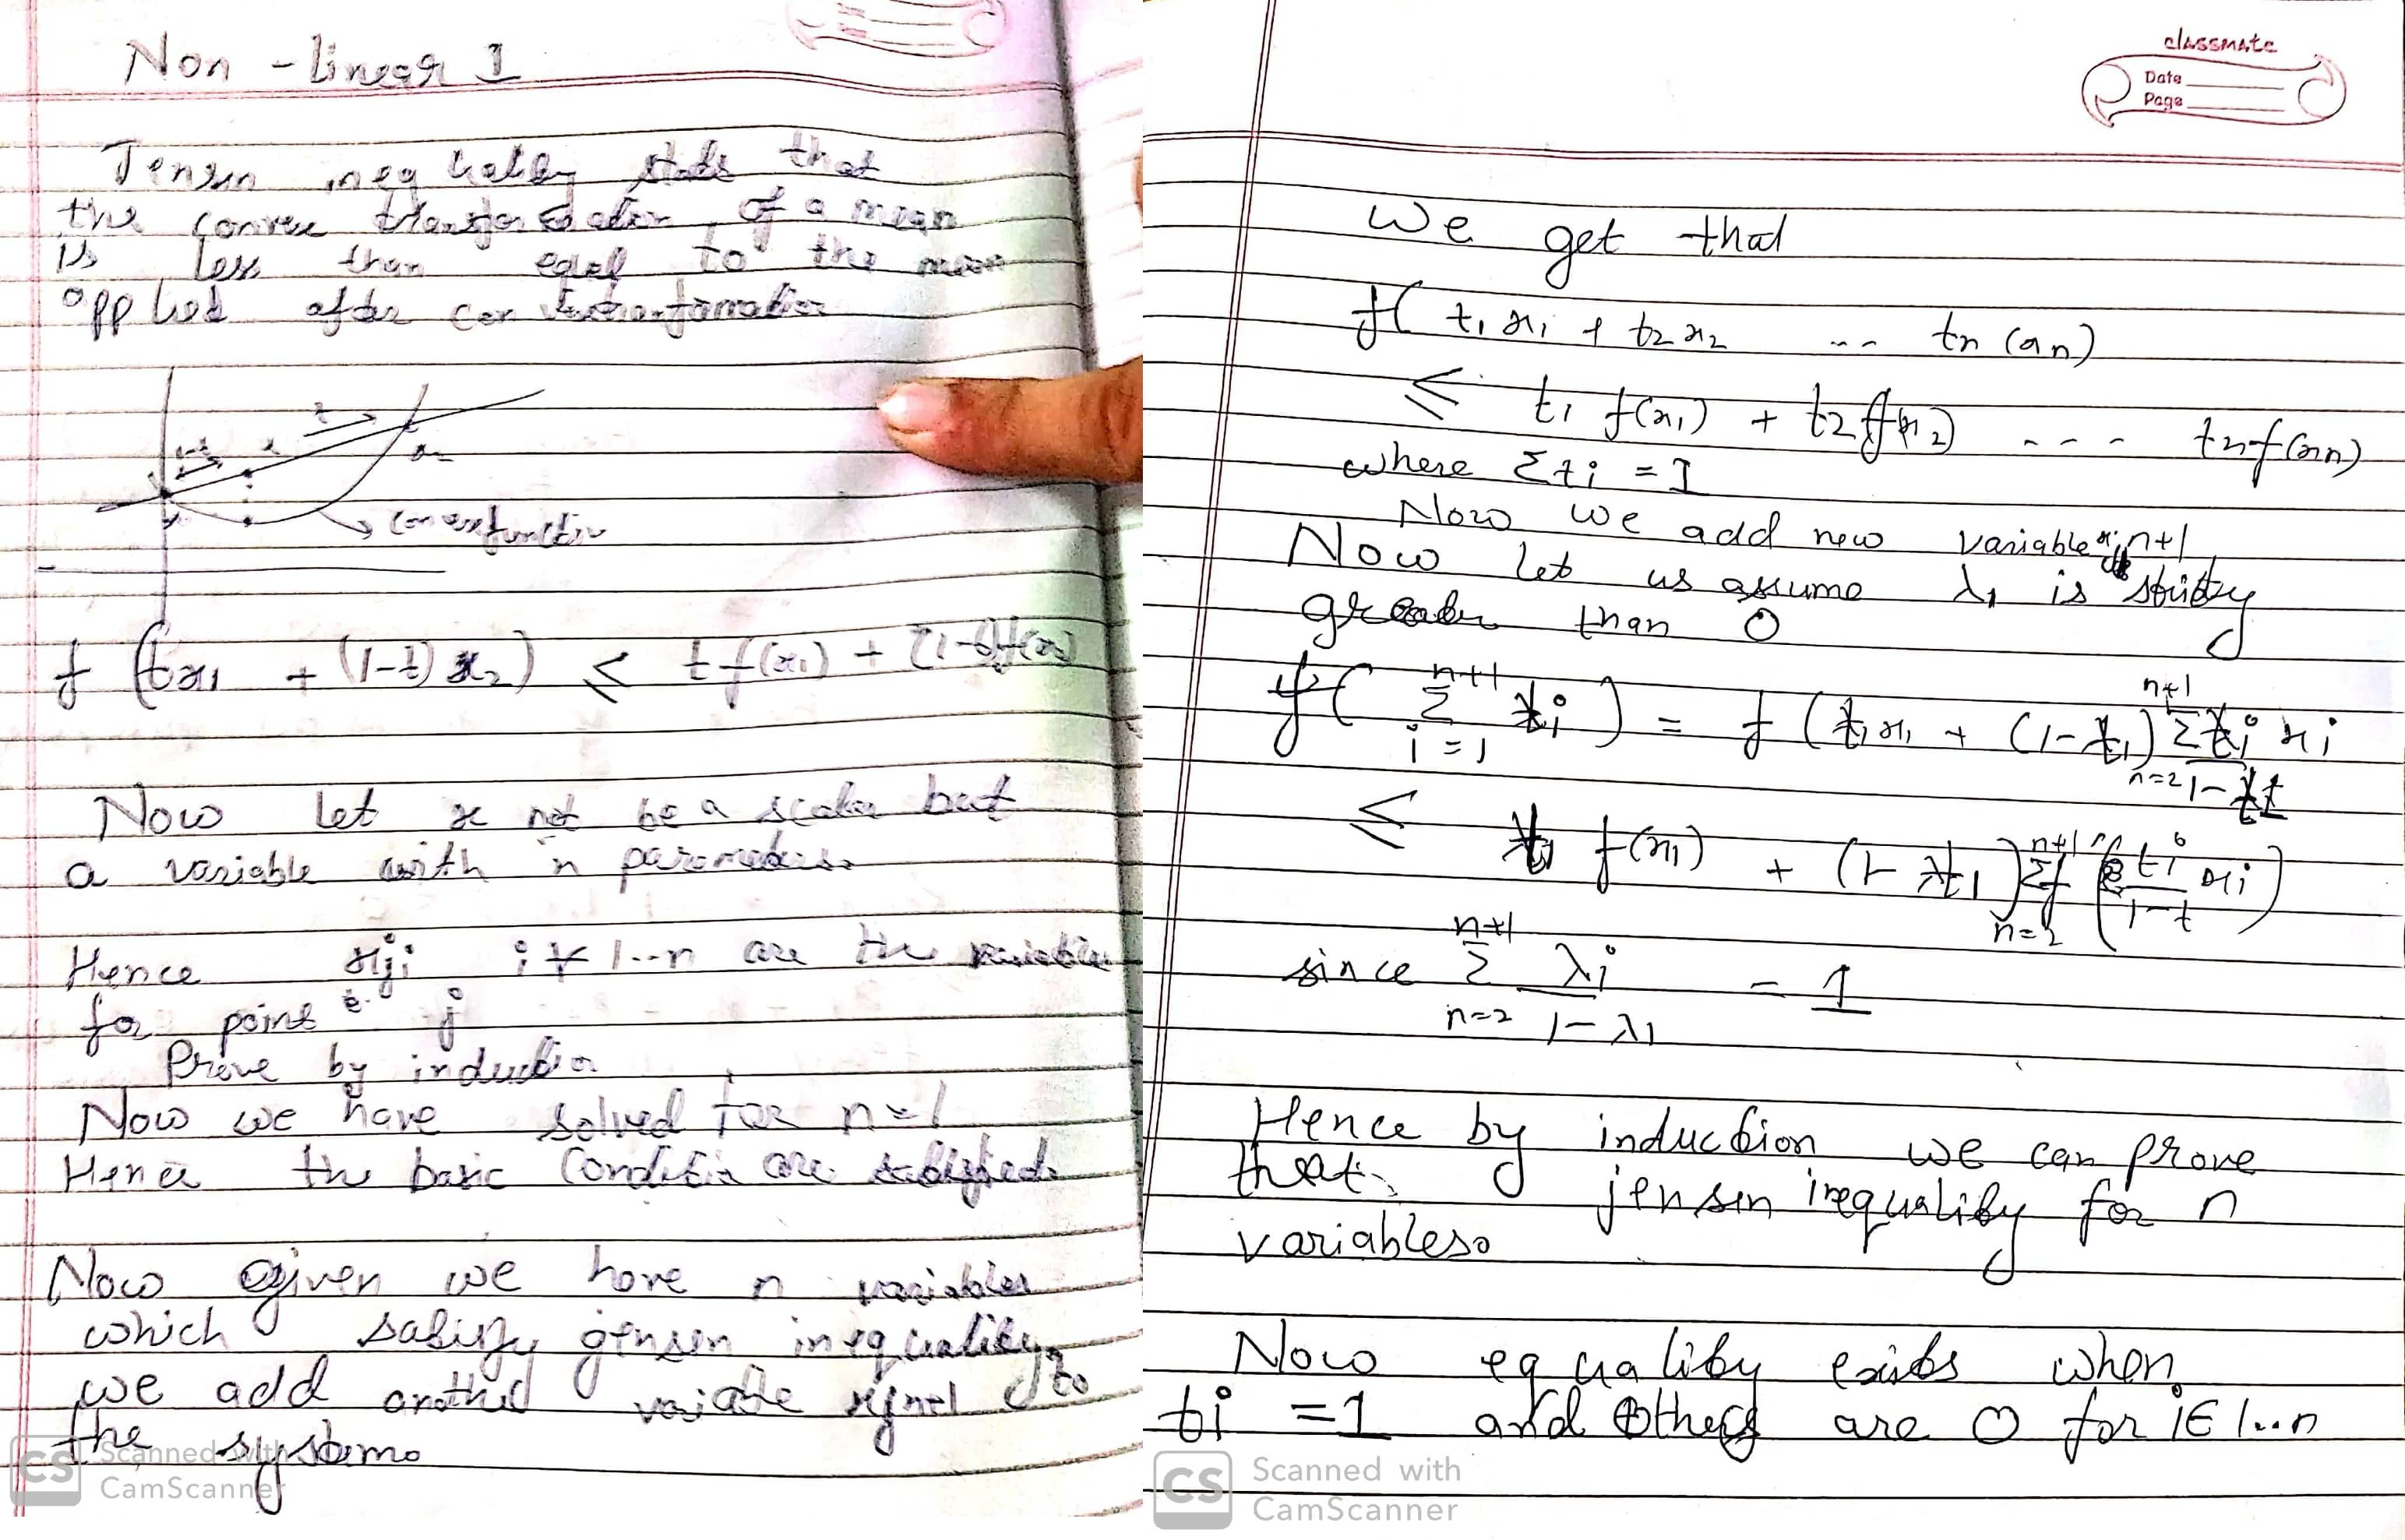 Non - linear 1
Jensen inequality states that
the convex transformation of a mean
is less than equal to the mean
applied after con transformation
1-t
t
x
x₂
convex function
f (tx₁ + (1-t) x₂) ≤ t f(x₁) + (1-t)f(x₂)
Now let x not be a scalar but
a variable with n parameters.
Hence xji i ∀ 1..n are the variables
for point j
Prove by induction
Now we have solved for n=1
Hence the basic condition are satisfied.
Now given we have n variables
which satisfy jensen inequality,
we add another variable to
the system.
Scanned with
CamScanner
classmate
Date
Page
We get that
f( t₁ x₁ + t₂ x₂ -- tn (xn)
≤ t₁ f(x₁) + t₂ f(x₂) --- tn f(xn)
where Σti = 1
Now we add new variable n+1
Now let us assume λ₁ is strictly
greater than 0
f( n+1 Σ i=1 ti ) = f (t₁x₁ + (1-t₁) n+1 Σ n=2 ti xi / 1-t
≤ t₁ f(x₁) + (1-t₁) n+1 Σ n=2 f (ti xi / 1-t)
since n+1 Σ n=2 λi / 1-λ₁ = 1
Hence by induction we can prove
that jensen inequality for n
variables.
Now equality exists when
ti = 1 and others are 0 for i∈ 1..n
CS Scanned with
CamScanner